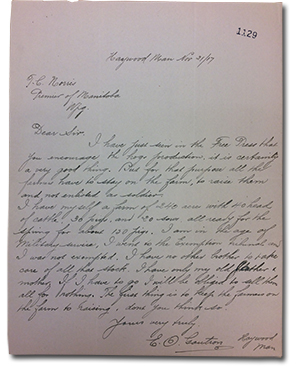 1129
Haywood Man Nov 21/17
T. C. Norris
Premier of Manitoba
Wpg
Dear Sir.
I have just seen in the Free Press that
you encourage the hog production, it is certainly
a very good thing. But for that purpose all the
farmers have to stay on the farm, to raise them
and not enlisted as soldier.
I have myself a farm of 240 acres with 40 head
of cattle, 30 pigs, and 20 sows all ready for the
spring for about 130 pigs. I am in the age of
Military service, I went to the Exemption Tribunal and
I was not exempted. I have no other brother to take
care of all that stock. I have only my old father &
mother. If I have to go I will be obliged to sell them
all for nothing. The first thing is to keep the farmers on
the farm to raising, dont you think so.
Yours very truly
E. Coutron
Haywood
Man